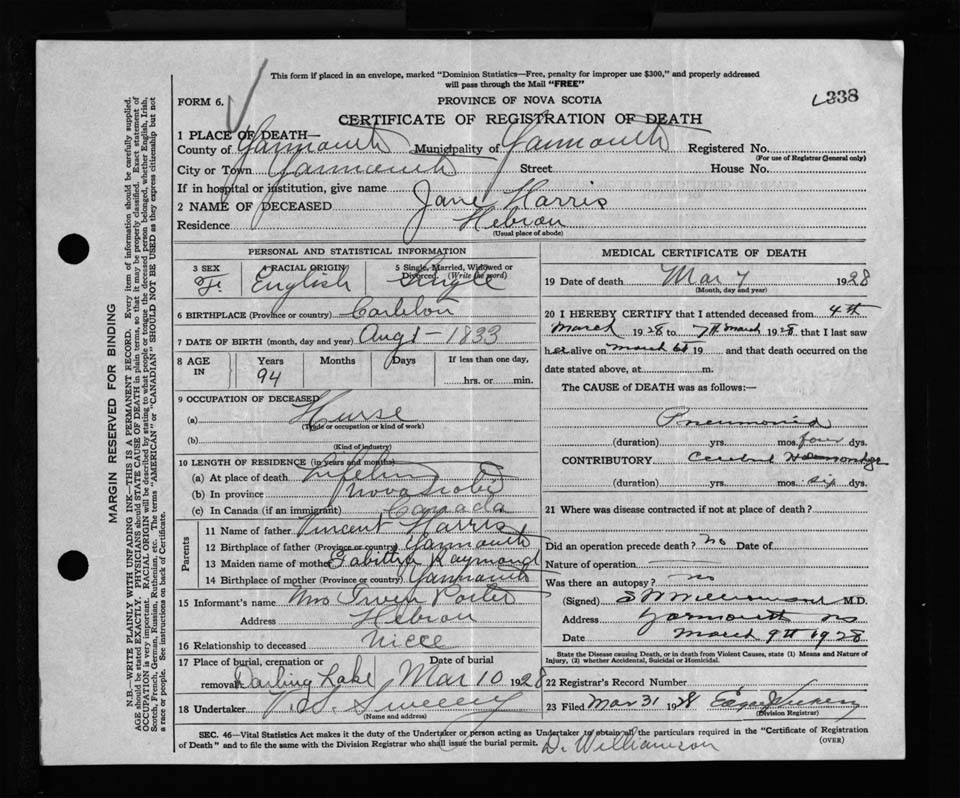 This form if placed in an envelope, marked "Dominion Statistics—Free, penalty for improper use $300," and properly addressed
will pass through the Mail "FREE"
FORM 6.
PROVINCE OF NOVA SCOTIA
338
CERTIFICATE OF REGISTRATION OF DEATH
1 PLACE OF DEATH—
County of Yarmouth Municipality of Yarmouth Registered No.
(For use of Registrar General only)
City or Town Yarmouth Street House No.
If in hospital or institution, give name
2 NAME OF DECEASED Jane Harris
Residence Hebron
(Usual place of abode)
PERSONAL AND STATISTICAL INFORMATION
3 SEX 4 RACIAL ORIGIN 5 Single, Married, Widowed or Divorced. (Write the word)
English Single
6 BIRTHPLACE (Province or country) Carleton
7 DATE OF BIRTH (month, day and year) Aug 1 - 1833
8 AGE IN Years Months Days If less than one day,
94 hrs. or min.
9 OCCUPATION OF DECEASED
(a) Nurse
(Trade or occupation or kind of work)
(b)
(Kind of industry)
10 LENGTH OF RESIDENCE (in years and months)
(a) At place of death Lifetime
(b) In province Nova Scotia
(c) In Canada (if an immigrant) Canada
Parents
11 Name of father Vincent Harris
12 Birthplace of father (Province or country) Yarmouth
13 Maiden name of mother Tabitha Raymond
14 Birthplace of mother (Province or country) Yarmouth
15 Informant's name Mrs Irvin Porter
Address Hebron
16 Relationship to deceased Niece
17 Place of burial, cremation or removal Date of burial
Darling Lake Mar 10 1928
18 Undertaker V. S. Sweeny
(Name and address)
MEDICAL CERTIFICATE OF DEATH
19 Date of death Mar 7 1928
(Month, day and year)
20 I HEREBY CERTIFY that I attended deceased from 4th
March 1928 to 7th March 1928 that I last saw
her alive on March 6th 19 and that death occurred on the
date stated above, at m.
The CAUSE of DEATH was as follows:—
Pneumonia
(duration) yrs. mos. four dys.
CONTRIBUTORY Cerebral Hemorrhage
(duration) yrs. mos. six dys.
21 Where was disease contracted if not at place of death?
Did an operation precede death? no Date of
Nature of operation
Was there an autopsy? no
(Signed) M.D.
Address Yarmouth NS
Date March 9th 1928
State the Disease causing Death, or in death from Violent Causes, state (1) Means and Nature of
Injury, (2) whether Accidental, Suicidal or Homicidal.
22 Registrar's Record Number
23 Filed Mar 31 1928
(Division Registrar)
SEC. 46—Vital Statistics Act makes it the duty of the Undertaker or person acting as Undertaker to obtain all the particulars required in the "Certificate of Registration
of Death" and to file the same with the Division Registrar who shall issue the burial permit.
(OVER)
D. Williamson
MARGIN RESERVED FOR BINDING
N.B.—WRITE PLAINLY WITH UNFADING INK—THIS IS A PERMANENT RECORD. Every item of information should be carefully supplied.
AGE should be stated EXACTLY. PHYSICIANS should STATE CAUSE OF DEATH in plain terms, so that it may be properly classified. Exact statement of
OCCUPATION is very important. RACIAL ORIGIN will be described by stating to what people or tongue the deceased person belonged, whether English, Irish,
Scotch, French, German, Russian, Ruthenian, etc. The terms "AMERICAN" or "CANADIAN" SHOULD NOT BE USED as they express citizenship but not
a race or people. See instructions on back of Certificate.